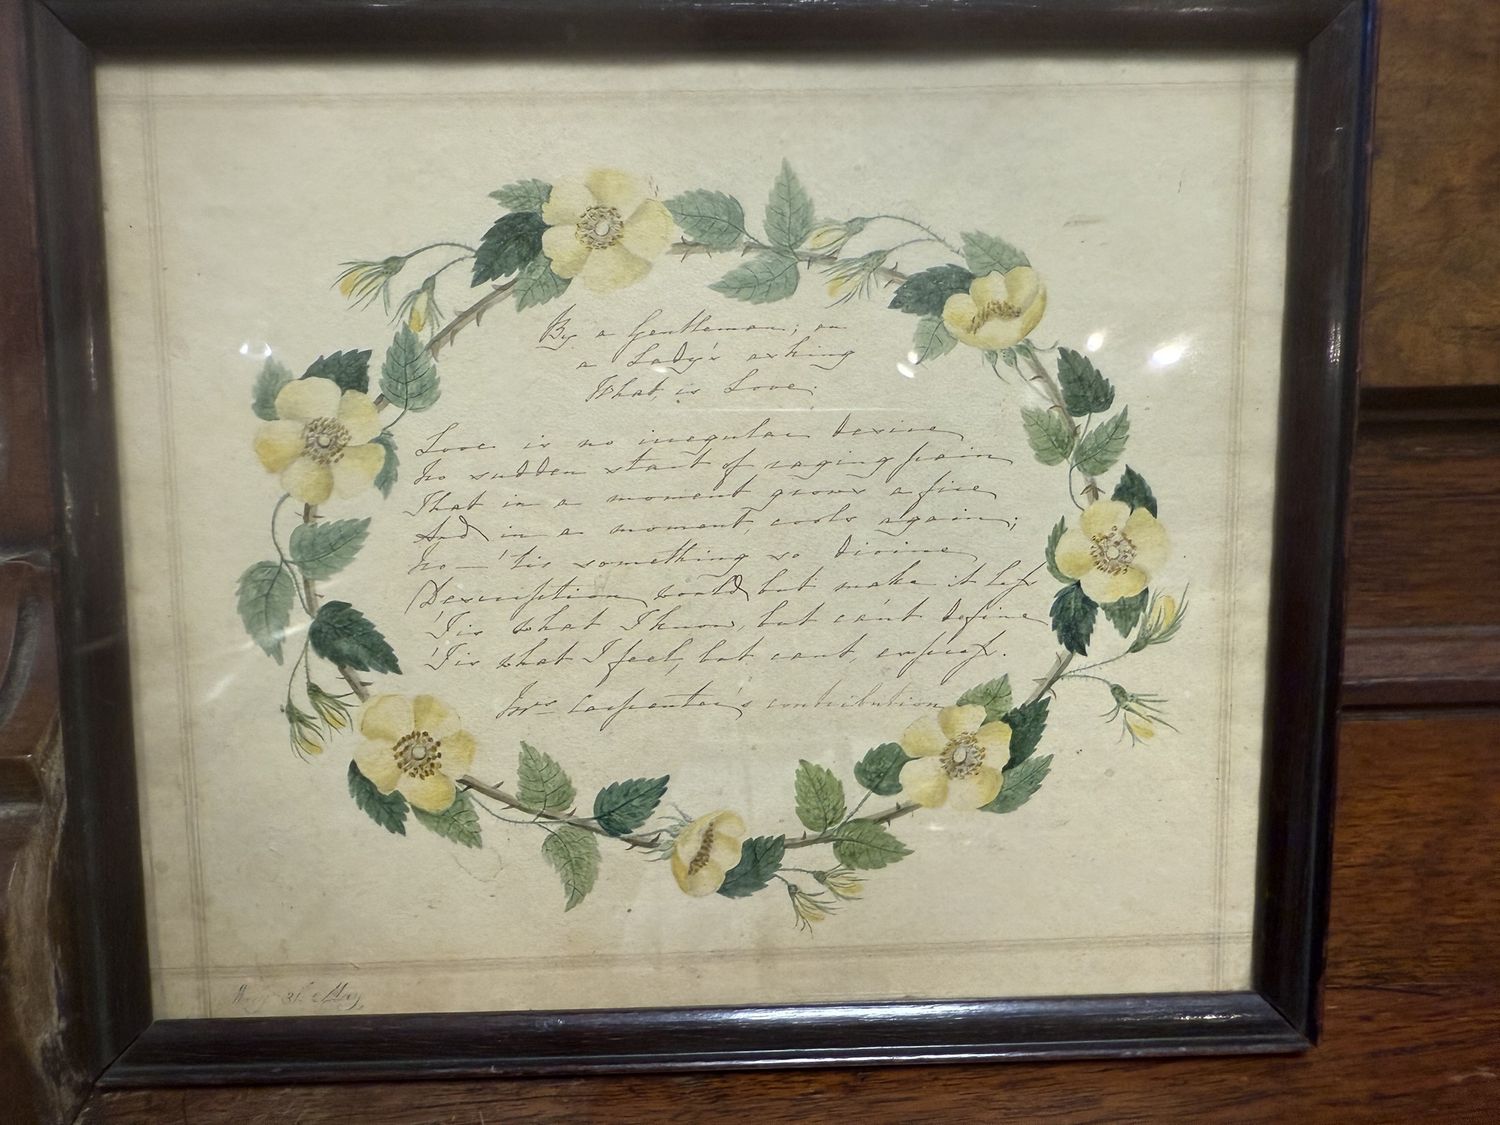 By a Gentleman, on
a Lady's asking
What is Love.
Love is no irregular desire
No sudden start of raging pain
That in a moment grows a fire
And in a moment, cools again;
No — 'tis something so divine
Description would but make it less
'Tis what I know, but can't define
'Tis what I feel, but cant, express.
Mrs Carpenter's contribution